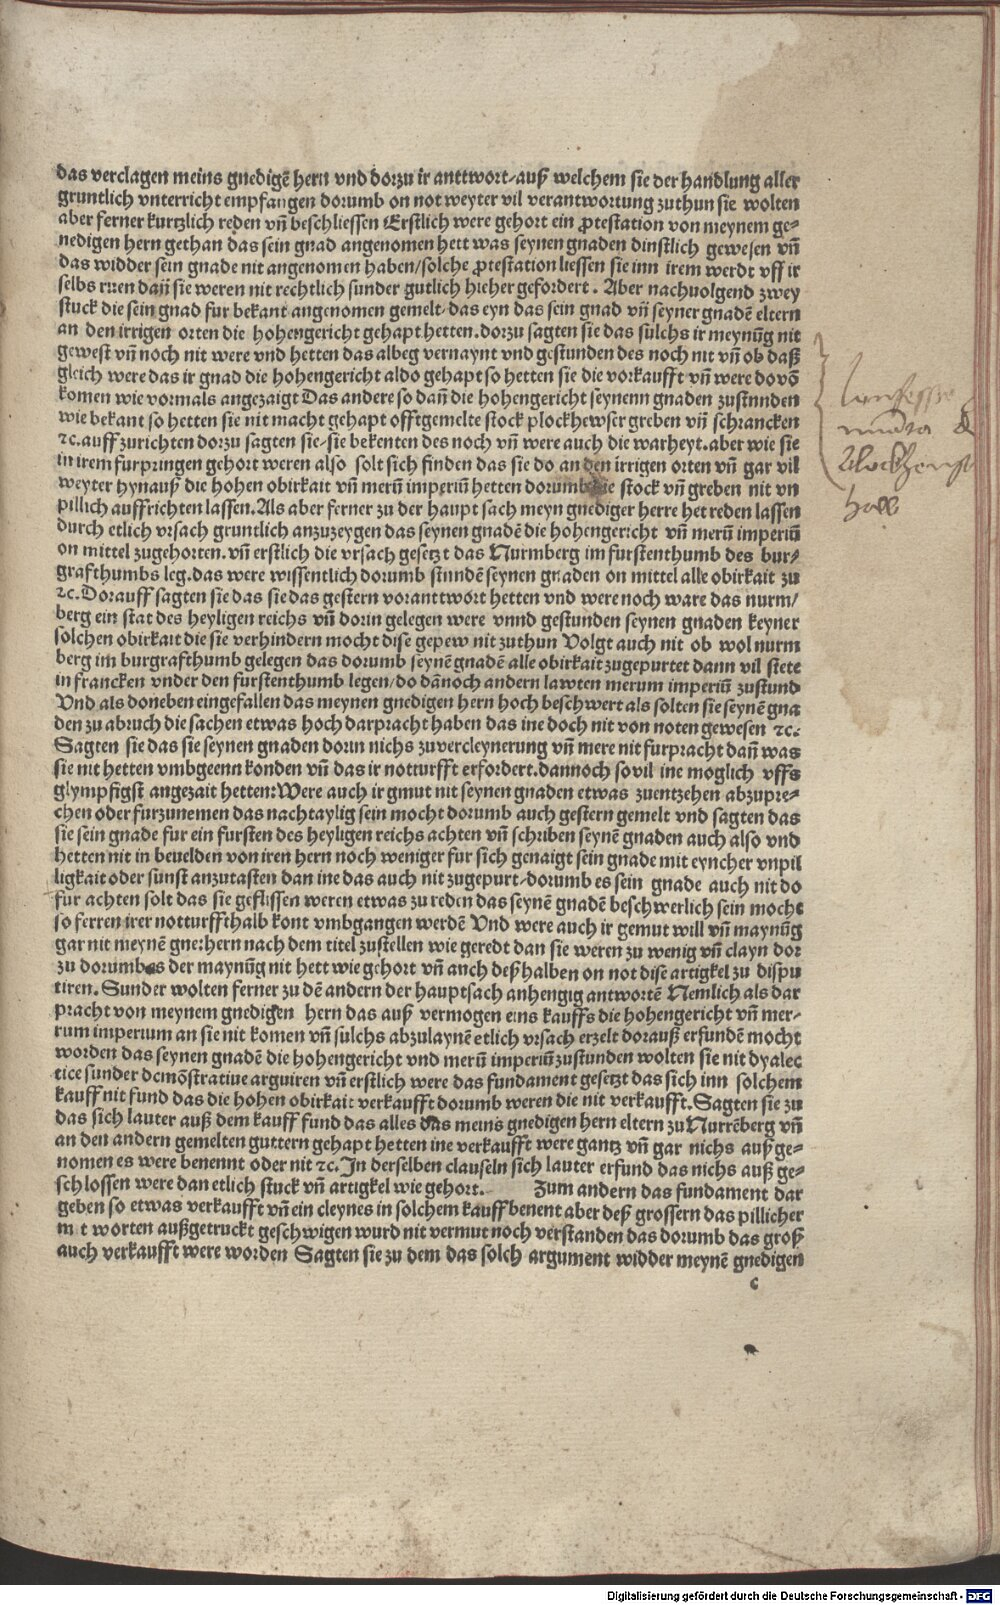 das verclagen meins gnedigē hern vnd dorzu ir anttwort/auß welchem sie der handlung aller
gruntlich vnterricht empfangen dorumb on not weyter vil verantwortung zuthun sie wolten
aber ferner kurtzlich reden vn̄ beschliessen Erstlich were gehort ein ꝓtestation von meynem ge⸗
nedigen hern gethan das sein gnad angenomen hett was seynen gnaden dinstlich gewesen vn̄
das widder sein gnade nit angenomen haben/solche ꝓtestation liessen sie inn irem werdt vff ir
selbs ruen dan̄ sie weren nit rechtlich sunder gutlich hieher gefordert. Aber nachuolgend zwey
stuck die sein gnad fur bekant angenomen gemelt/das eyn das sein gnad vn̄ seyner gnadē eltern
an den irrigen orten die hohengericht gehapt hetten.dorzu sagten sie das sulchs ir meynūg nit
gewest vn̄ noch nit were vnd hetten das albeg vernaynt vnd gestunden des noch nit vn̄ ob daß
gleich were das ir gnad die hohengericht aldo gehapt so hetten sie die vorkaufft vn̄ were dovō
komen wie vormals angezaigt Das andere so dan̄ die hohengericht seynenn gnaden zustunden
wie bekant so hetten sie nit macht gehapt offtgemelte stock plockhewser greben vn̄ schrancken
⁊c.auff zurichten dorzu sagten sie/sie bekenten des noch vn̄ were auch die warheyt.aber wie sie
in irem furpringen gehort weren also solt sich finden das sie do an den irrigen orten vn̄ gar vil
weyter hynauß die hohen obirkait vn̄ merū imperiū hetten dorumb die stock vn̄ greben nit vn
pillich auffrichten lassen.Als aber ferner zu der haupt sach meyn gnediger herre het reden lassen
durch etlich vrsach gruntlich anzuzeygen das seynen gnadē die hohengericht vn̄ merū imperiū
on mittel zugehorten.vn̄ erstlich die vrsach gesetzt das Nurmberg im furstenthumb des bur⸗
grafthumbs leg.das were wissentlich dorumb stundē seynen gnaden on mittel alle obirkait zu
⁊c.Dorauff sagten sie das sie das gestern vorantwort hetten vnd were noch ware das nurm/
berg ein stat des heyligen reichs vn̄ dorin gelegen were vnnd gestunden seynen gnaden keyner
solchen obirkait die sie verhindern mocht dise gepew nit zuthun Volgt auch nit ob wol nurm
berg im burgrafthumb gelegen das dorumb seynē gnadē alle obirkait zugepurtet dann vil stete
in francken vnder den furstenthumb legen/do dānoch andern lawten merum imperiū zustund
Vnd als doneben eingefallen das meynen gnedigen hern hoch beschwert als solten sie seynē gna
den zu abruch die sachen etwas hoch darpracht haben das ine doch nit von noten gewesen ⁊c.
Sagten sie das sie seynen gnaden dorin nichs zuvercleynerung vn̄ mere nit furpracht dan̄ was
sie nit hetten vmbgeenn konden vn̄ das ir notturfft erfordert.dannoch sovil ine moglich vffs
glympfigst angezait hetten:Were auch ir gmut nit seynen gnaden etwas zuentzehen abzupre⸗
chen oder furzunemen das nachtaylig sein mocht dorumb auch gestern gemelt vnd sagten das
sie sein gnade fur ein fursten des heyligen reichs achten vn̄ schriben seynē gnaden auch also vnd
hetten nit in beuelden von iren hern noch weniger fur sich genaigt sein gnade mit eyncher vnpil
ligkait oder sunst anzutasten dan ine das auch nit zugepurt/dorumb es sein gnade auch nit do
fur achten solt das sie geflissen weren etwas zu reden das seynē gnadē beschwerlich sein mocht
so ferren irer notturffthalb kont vmbgangen werdē Vnd were auch ir gemut will vn̄ maynūg
gar nit meynē gne:hern nach dem titel zustellen wie geredt dan sie weren zu wenig vn̄ clayn dor
zu dorumb es der maynūg nit hett wie gehort vn̄ auch deßhalben on not dise artigkel zu dispu
tiren.Sunder wolten ferner zu dē andern der hauptsach anhengig antwortē Nemlich als dar
pracht von meynem gnedigen hern das auß vermogen eins kauffs die hohengericht vn̄ mer⸗
rum imperium an sie nit komen vn̄ sulchs abzulaynē etlich vrsach erzelt dorauß erfundē mocht
worden das seynen gnadē die hohengericht vnd merū imperiū zustunden wolten sie nit dyalec
tice sunder demōstrative arguiren vn̄ erstlich were das fundament gesetzt das sich inn solchem
kauff nit fund das die hohen obirkait verkaufft dorumb weren die nit verkaufft.Sagten sie zu
das sich lauter auß dem kauff fund das alles das meins gnedigen hern eltern zu Nurrēberg vn̄
an den andern gemelten guttern gehapt hetten ine verkaufft were gantz vn̄ gar nichs außge⸗
nomen es were benennt oder nit ⁊c.In derselben clauseln sich lauter erfund das nichs auß ge⸗
schlossen were dan etlich stuck vn̄ artigkel wie gehort. Zum andern das fundament dar
geben so etwas verkaufft vn̄ ein cleynes in solchem kauff benent aber deß grossern das pillicher
mit worten außgetruckt geschwigen wurd nit vermut noch verstanden das dorumb das groß
auch verkaufft were worden Sagten sie zu dem das solch argument widder meynē gnedigen
c
Digitalisierung gefördert durch die Deutsche Forschungsgemeinschaft - DFG